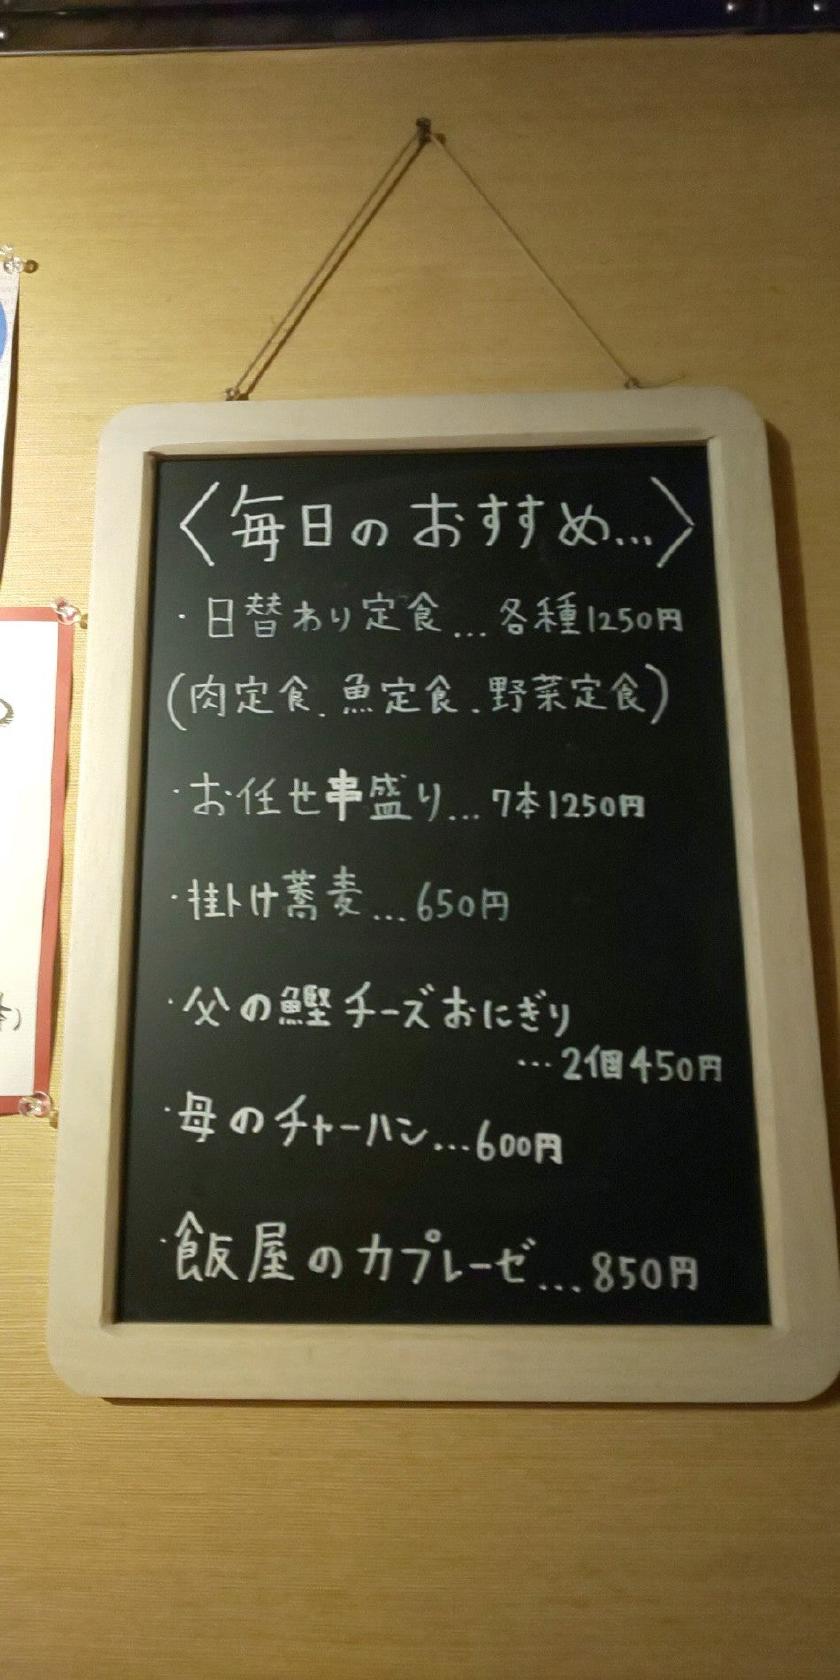 〈毎日のおすすめ...〉
・日替わり定食...各種1250円
(肉定食.魚定食.野菜定食)
・お任せ串盛り...7本1250円
・掛け蕎麦...650円
・父の鰹チーズおにぎり
...2個450円
・母のチャーハン...600円
・飯屋のカプレーゼ...850円